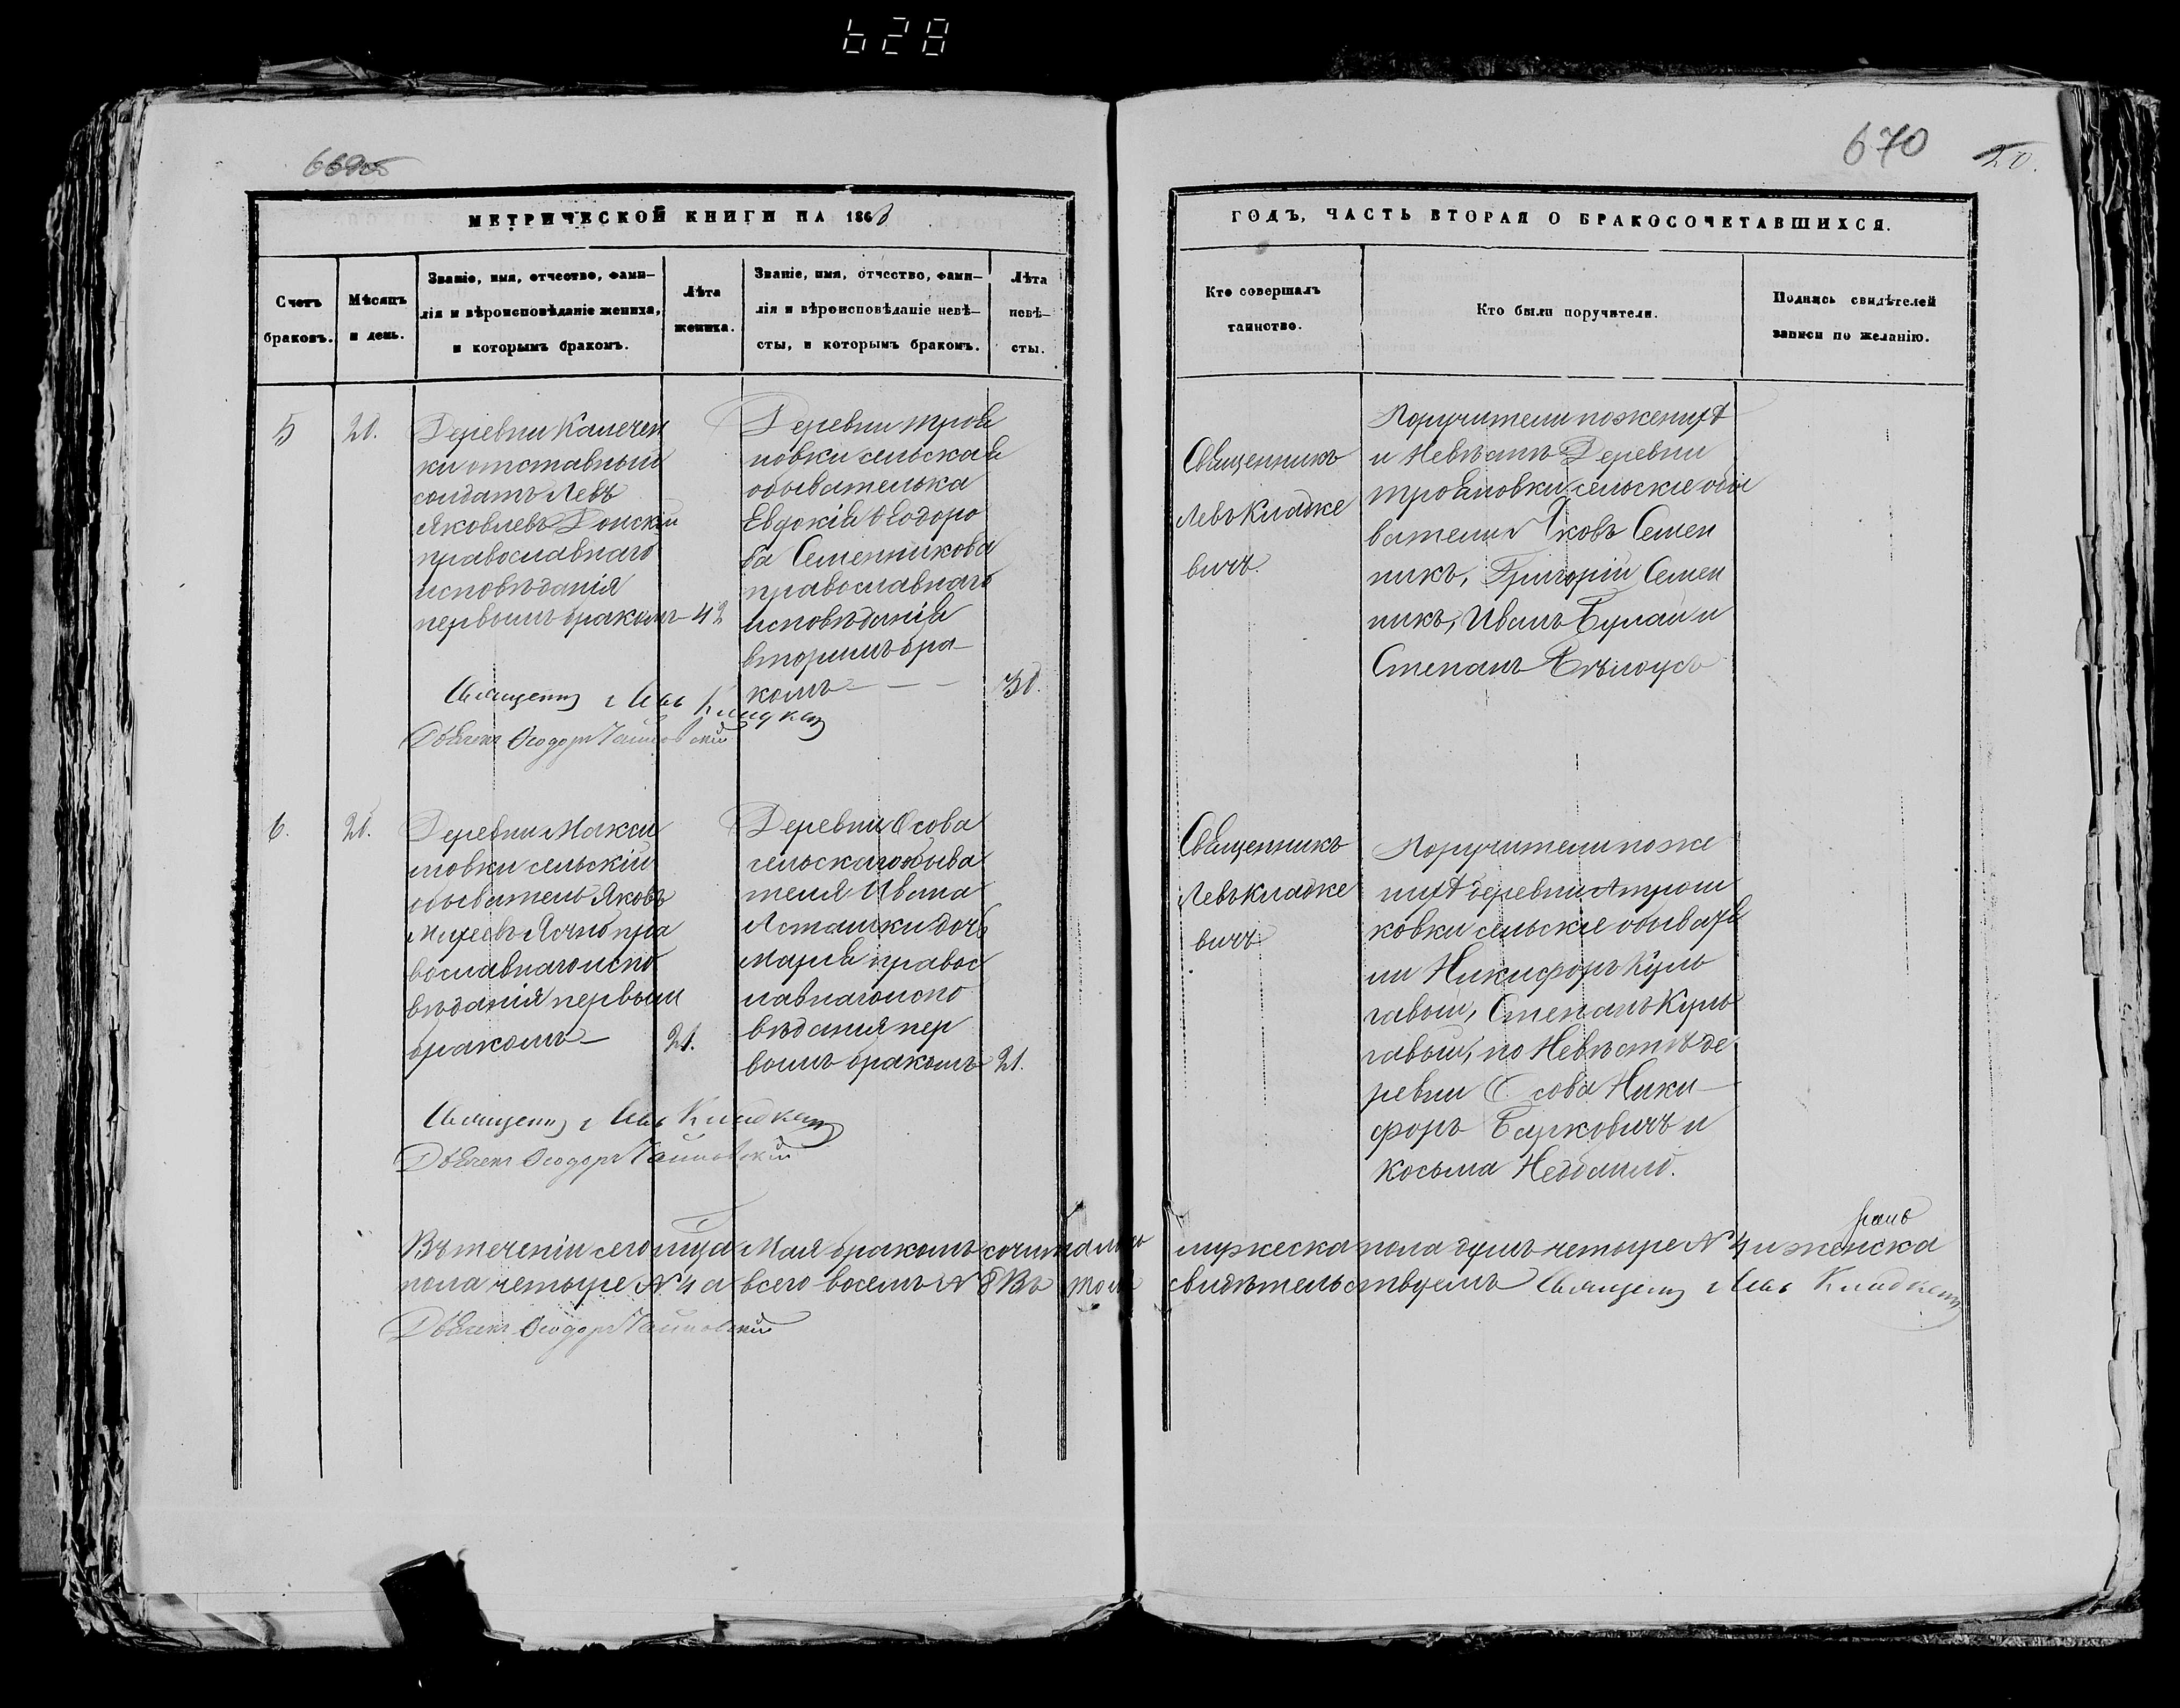 628
670
20.
МЕТРИЧЕСКОЙ КНИГИ НА 186
Счетъ
браковъ.
Мѣсяцъ
и день.
Званіе, имя, отчество, фами-
лія и вѣроисповѣданіе жениха,
и которымъ бракомъ.
Лѣта
жениха.
Званіе, имя, отчество, фами-
лія и вѣроисповѣданіе невѣ-
сты, и которымъ бракомъ.
Лѣта
невѣ-
сты.
ГОДЪ, ЧАСТЬ ВТОРАЯ О БРАКОСОЧЕТАВШИХСЯ.
Кто совершалъ
таинство.
Кто были поручители.
Подпись свидѣтелей
записи по желанію.
5
Деревни Калечен
ки отставный
солдатъ Левъ
Яковлевъ Донскій
православнаго
исповѣданія
первымъ бракомъ - 42
Деревни Троя
новки сельская
обывателька
Евдокія Ѳеодоро
ва Семенникова
православнаго
исповѣданія
вторымъ бра
комъ - - -
Священникъ
Левъ Кладке
вичъ.
Поручители по женихѣ
и Невѣстѣ Деревни
Трояновки сельскіе обы
ватели Яковъ Семен
никъ, Григорій Семен
никъ, Иванъ Булай и
Степанъ Бѣлоусъ
Священникъ Левъ Кладкевичъ
Дьячекъ Ѳеодоръ
6.
Деревни Макси
мовки сельскій
обыватель Яковъ
Михеевъ пра
вославнаго испо
вѣданія первым
бракомъ -
21.
Деревни Осова
сельскаго обыва
теля Ивана
Асташки дочь
Марія правос
лавнаго испо
вѣданія пер
вымъ бракомъ 21.
Священникъ
Левъ Кладке
вичъ
Поручители по же
нихѣ деревни Атрош
ковки сельскіе обывате
ли Никифоръ Куль
гавый, Степанъ Куль
гавый, по Невѣстѣ де
ревни Осова Ники
форъ Буркович и
Косьма Недбайло.
Священникъ Левъ Кладкевичъ
Дьячекъ Ѳеодоръ
Въ теченіи сего м-ца Мая бракомъ сочиталось мужеска пола душъ четыре № 4 и женска
пола четыре № 4 а всего восемъ № 8 Въ томъ свидѣтельствуемъ Священникъ Левъ Кладкевичъ
Дьячекъ Ѳеодоръ